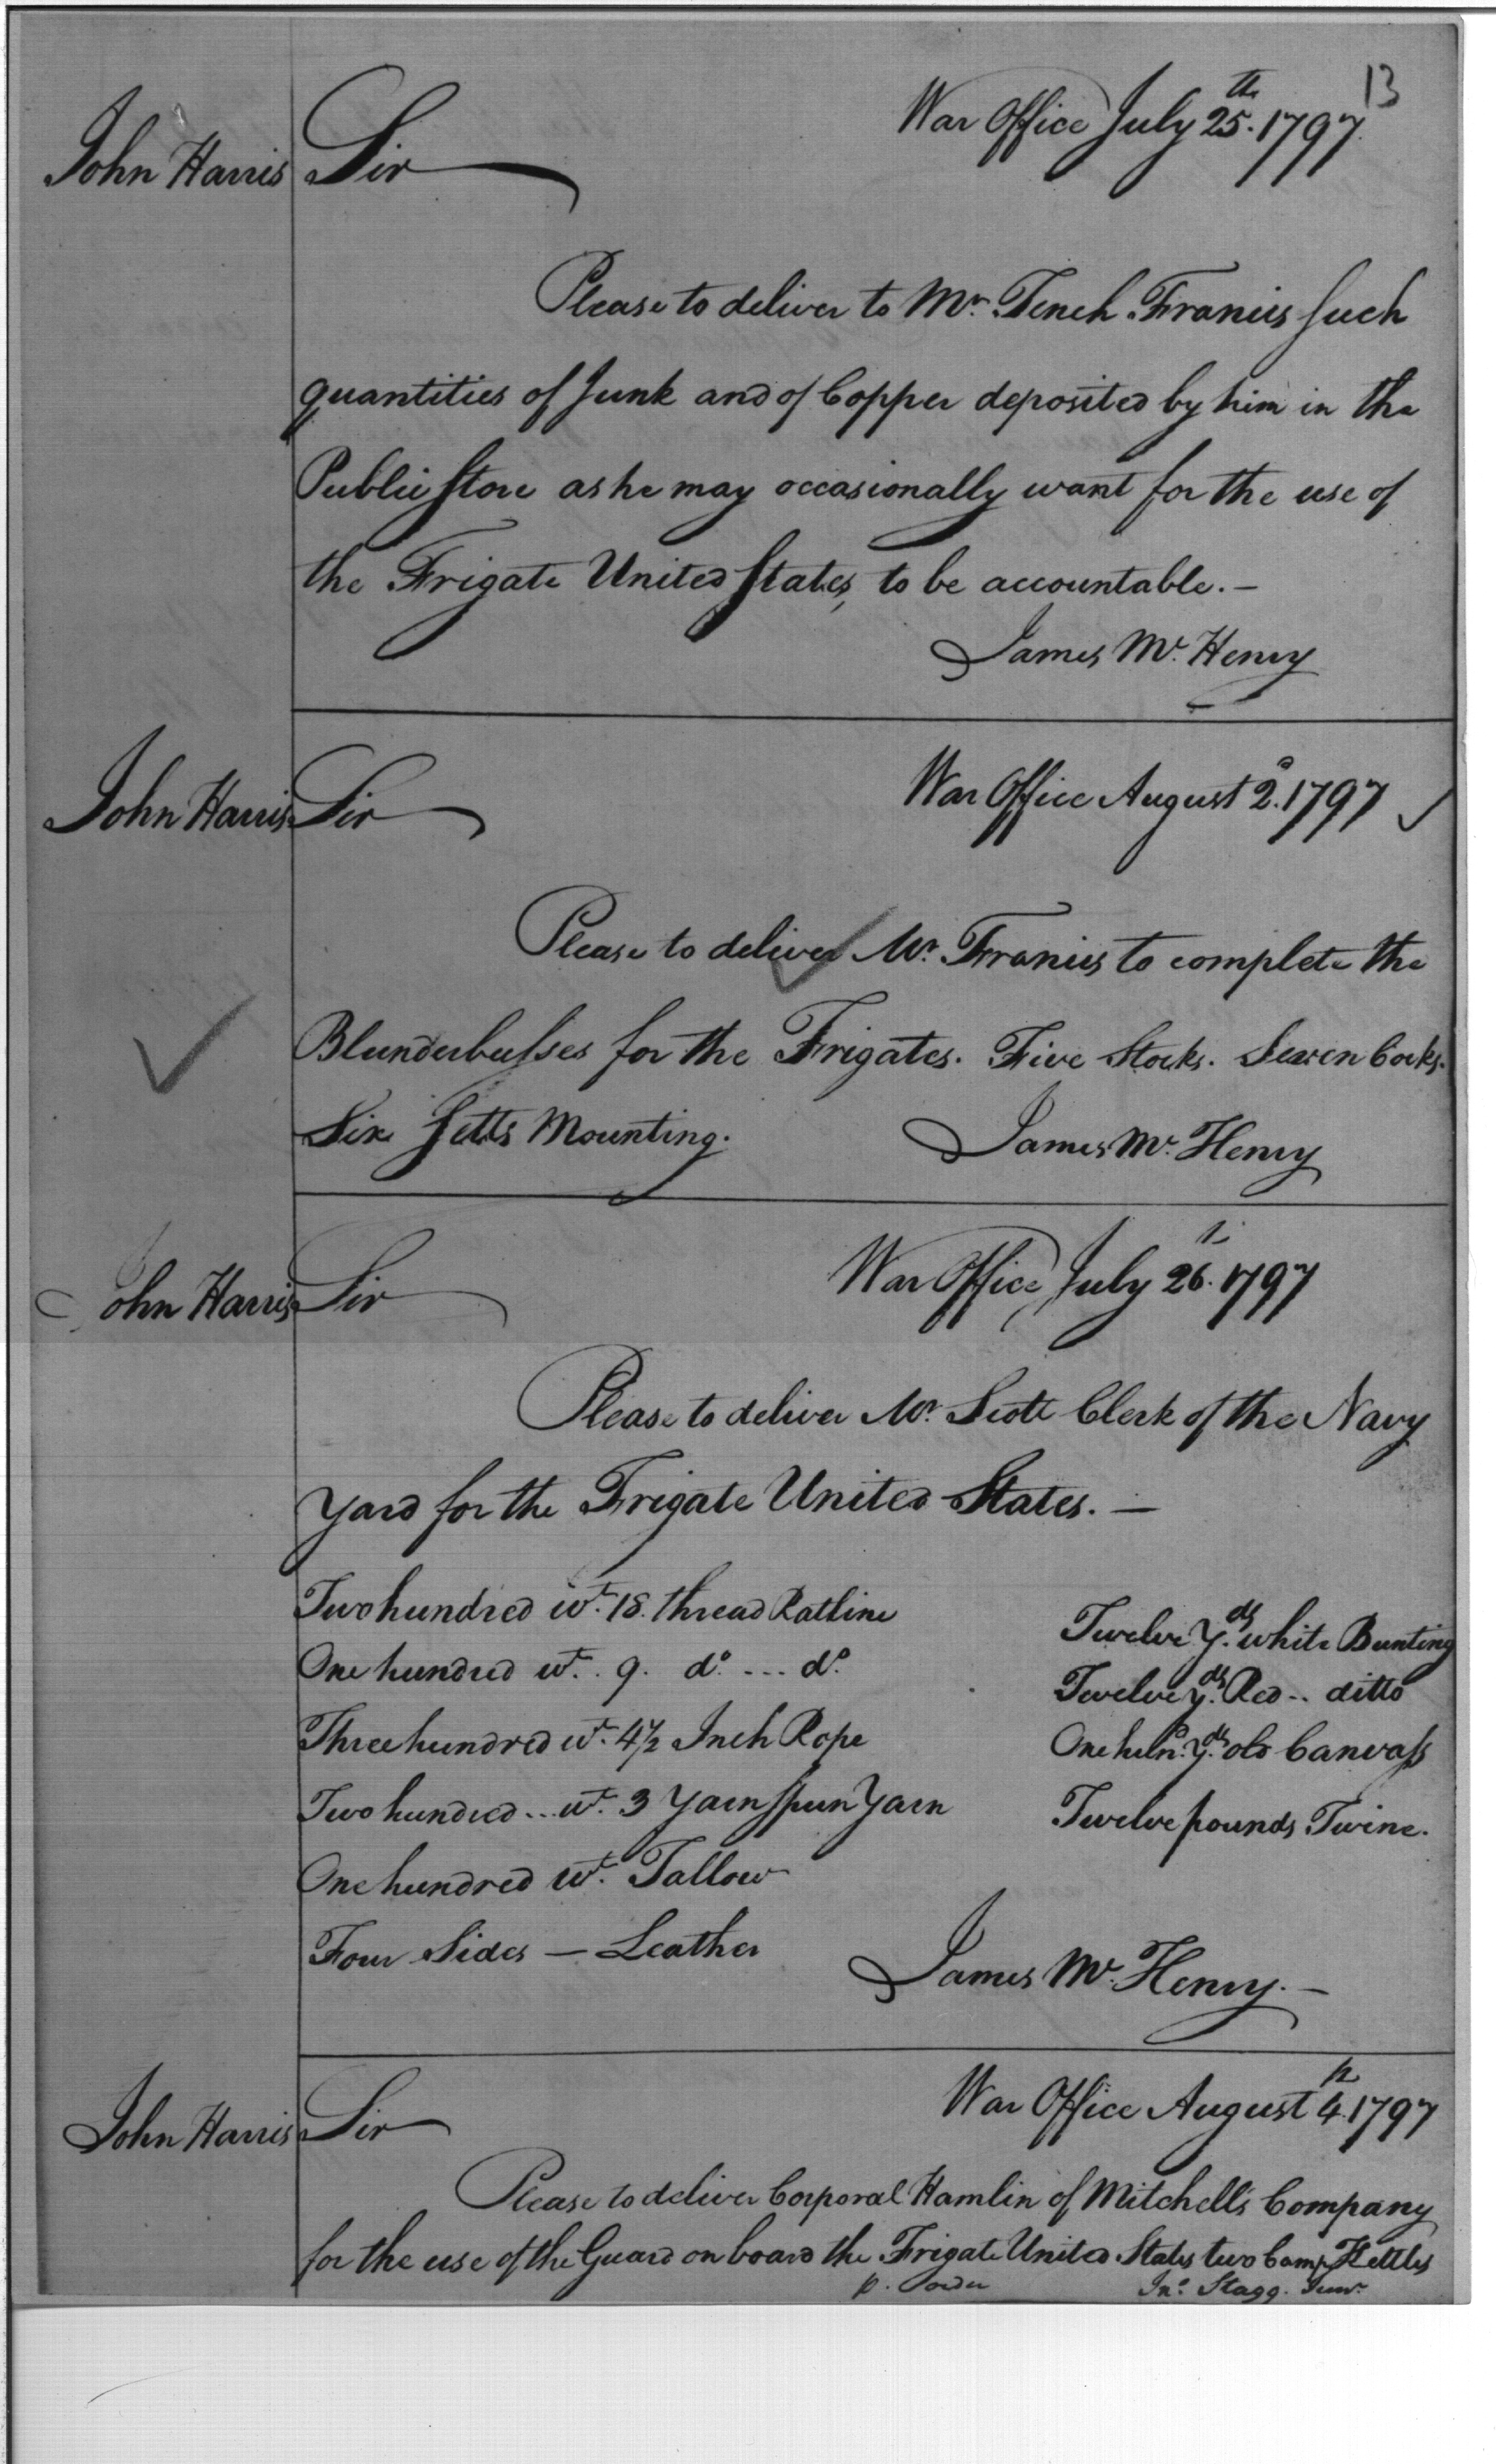 13
War Office July 25th. 1797
John Harris Sir
Please to deliver to Mr. Tench Francis such
quantities of Junk and of Copper deposited by him in the
Public Store as he may occasionally want for the use of
the Frigate United States, to be accountable. —
James Mc. Henry
War Office August 2d. 1797
John Harris Sir
Please to deliver Mr. Francis to complete the
Blunderbusses for the Frigates. Five Stocks. Seven Cocks.
Six Setts Mounting.
James Mc. Henry
War Office July 26th. 1797
John Harris Sir
Please to deliver Mr. Scott Clerk of the Navy
Yard for the Frigate United States. —
Two hundred wt. 18. thread Ratline
One hundred wt. . 9. do. --- do.
Three hundred wt. 4 1/2 Inch Rope
Two hundred ... wt. 3 Yarn spun Yarn
One hundred wt. Tallow
Four Sides — Leather
Twelve Yds. white Bunting
Twelve yds. Red .. ditto
One hund. Yds. old Canvass
Twelve pounds Twine.
James Mc. Henry. —
War Office August 4th. 1797
John Harris Sir
Please to deliver Corporal Hamlin of Mitchell's Company
for the use of the Guard on board the Frigate United States two Camp Kettles
p. order Jno. Stagg. Junr.